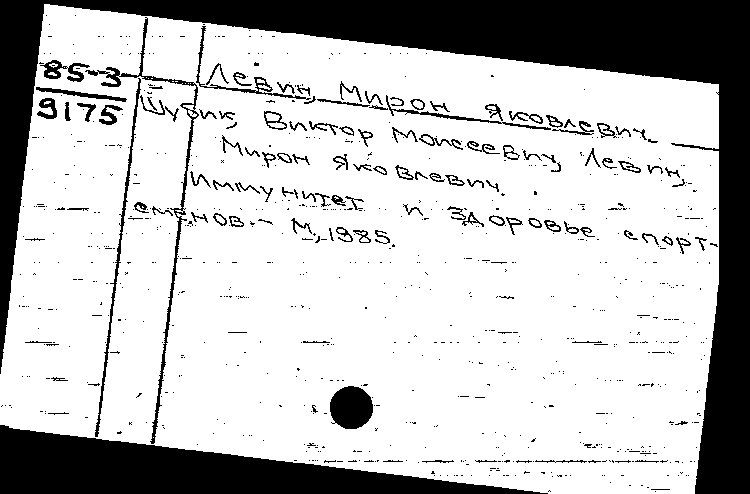 85-3
9175
Левин, Мирон Яковлевич
Шубик, Виктор Моисеевич, Левин,
Мирон Яковлевич.
Иммунитет и здоровье спорт-
сменов. - М, 1985.